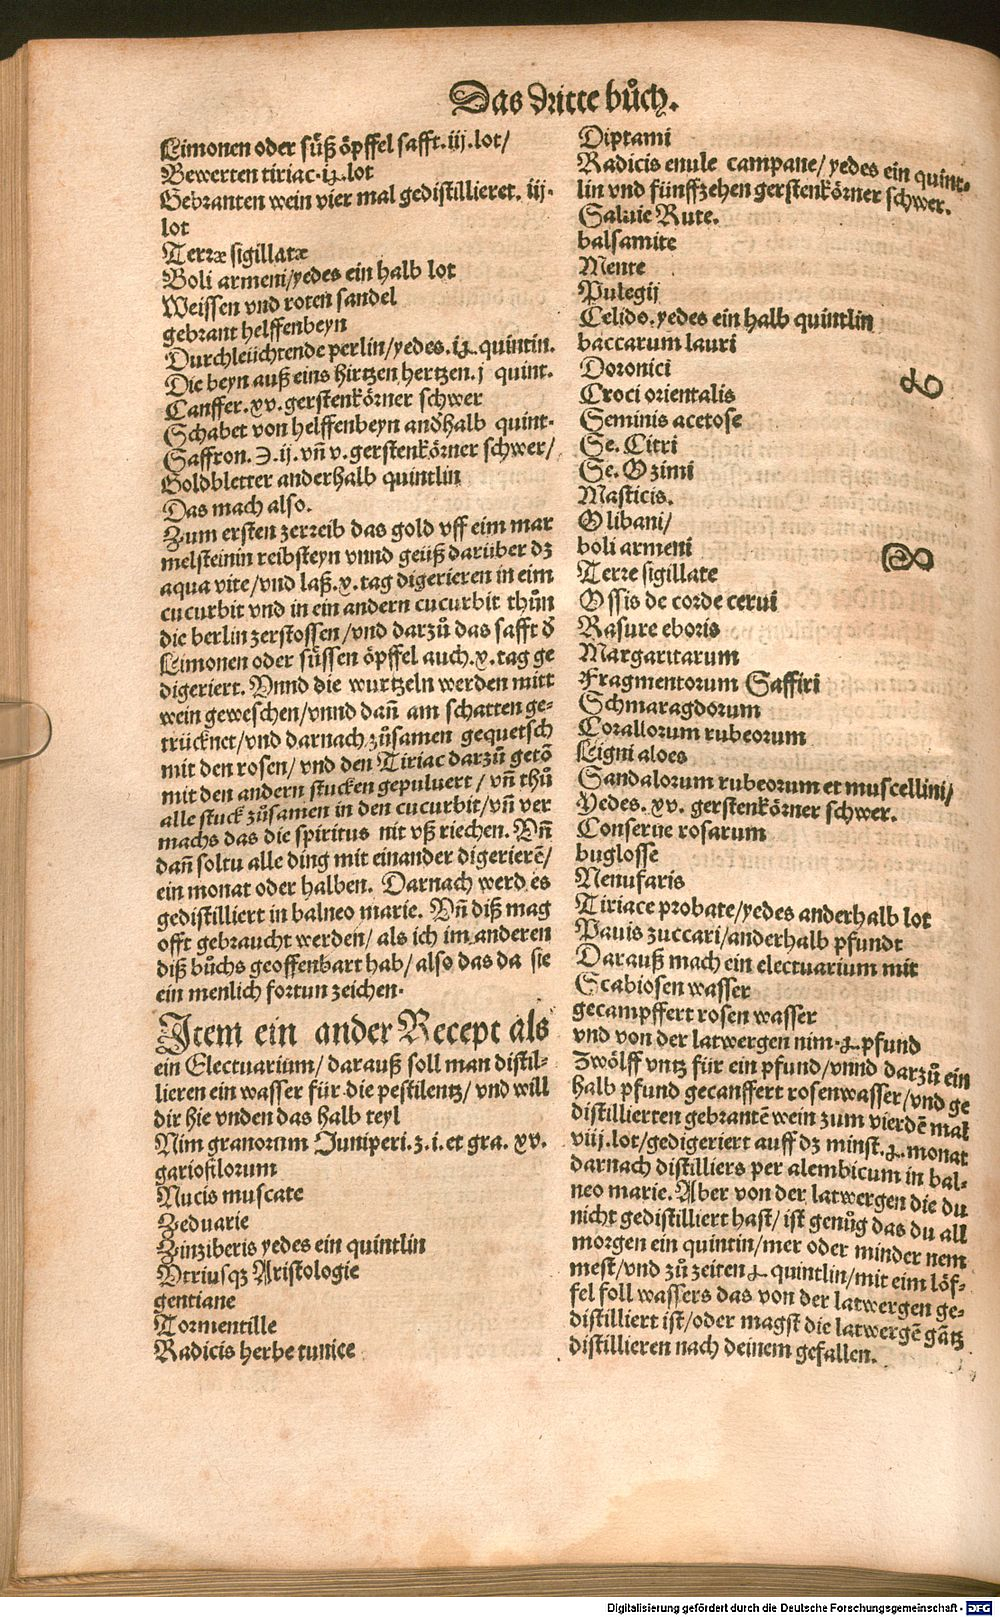 Das dritte bůch.
Limonen oder süß öpffel safft.iij.lot/
Bewerten tiriac.iꝜ.lot
Gebranten wein vier mal gedistillieret. iij.
lot
Terræ sigillatæ
Boli armeni/yedes ein halb lot
Weissen vnd roten sandel
gebrant helffenbeyn
Durchleüchtende perlin/yedes.iꝜ.quintin.
Die beyn auß eins hirtzen hertzen.j quint.
Canffer.xv.gerstenkörner schwer
Schabet von helffenbeyn andhalb quint.
Saffron.℈.ij.vñ v.gerstenkörner schwer/
Goldbletter anderhalb quintlin
Das mach also.
Zum ersten zerreib das gold vff eim mar
melsteinin reibsteyn vnnd geüß darüber dz
aqua vite/vnd laß.x.tag digerieren in eim
cucurbit vnd in ein andern cucurbit thůn
die berlin zerstossen/vnd darzů das safft d̛
Leimonen oder süssen öpffel auch.x.tag ge
digeriert. Vnnd die wurtzeln werden mitt
wein geweschen/vnnd dañ am schatten ge-
trücknet/vnd darnach zůsamen gequetsch
mit den rosen/ vnd den Tiriac darzů getõ
mit den andern stucken gepuluert / vñ thů
alle stuck zůsamen in den cucurbit/vñ ver
machs das die spiritus nit vß riechen. Vñ
dañ soltu alle ding mit einander digerierẽ/
ein monat oder halben. Darnach werd es
gedistilliert in balneo marie. Vñ diß mag
offt gebraucht werden/ als ich im anderen
diß bůchs geoffenbart hab/ also das da sie
ein menlich fortun zeichen.
Item ein ander Recept als
ein Electuarium/ darauß soll man distil-
lieren ein wasser für die pestilentz/ vnd will
dir hie vnden das halb teyl
Nim granorum Juniperi.ʒ.i.et gra. xv.
gariofilorum
Nucis muscate
Zeduarie
Zinziberis yedes ein quintlin
Vtriusqʒ Aristologie
gentiane
Tormentille
Radicis herbe tunice
Diptami
Radicis enule campane/ yedes ein quint-
lin vnd fünffzehen gerstenkörner schwer.
Saluie Rute.
balsamite
Mente
Pulegij
Celido.yedes ein halb quintlin
baccarum lauri
Doronici
Croci orientalis
Seminis acetose
Se. Citri
Se. Ozimi
Masticis.
Olibani/
boli armeni
Terre sigillate
Ossis de corde cerui
Rasure eboris
Margaritarum
Fragmentorum Saffiri
Schmaragdorum
Corallorum rubeorum
Ligni aloes
Sandalorum rubeorum et muscellini/
Yedes. xv. gerstenkörner schwer.
Conserue rosarum
buglosse
Nenufaris
Tiriace probate/yedes anderhalb lot
Pauis zuccari/anderhalb pfundt
Darauß mach ein electuarium mit
Scabiosen wasser
gecampffert rosen wasser
vnd von der latwergen nim.Ꝝ.pfund
Zwölff vntz für ein pfund/vnnd darzů ein
halb pfund gecanffert rosenwasser/vnd ge
distillierten gebrantẽ wein zum vierdẽ mal
viij.lot/gedigeriert auff dz minst.Ꝝ.monat
darnach distilliers per alembicum in bal-
neo marie. Aber von der latwergen die du
nicht gedistilliert hast/ ist genůg das du all
morgen ein quintin/mer oder minder nem
mest/vnd zů zeiten Ꝝ quintlin/mit eim löf-
fel foll wassers das von der latwergen ge-
distilliert ist/oder magst die latwergẽ gãtz
distillieren nach deinem gefallen.
Digitalisierung gefördert durch die Deutsche Forschungsgemeinschaft - DFG